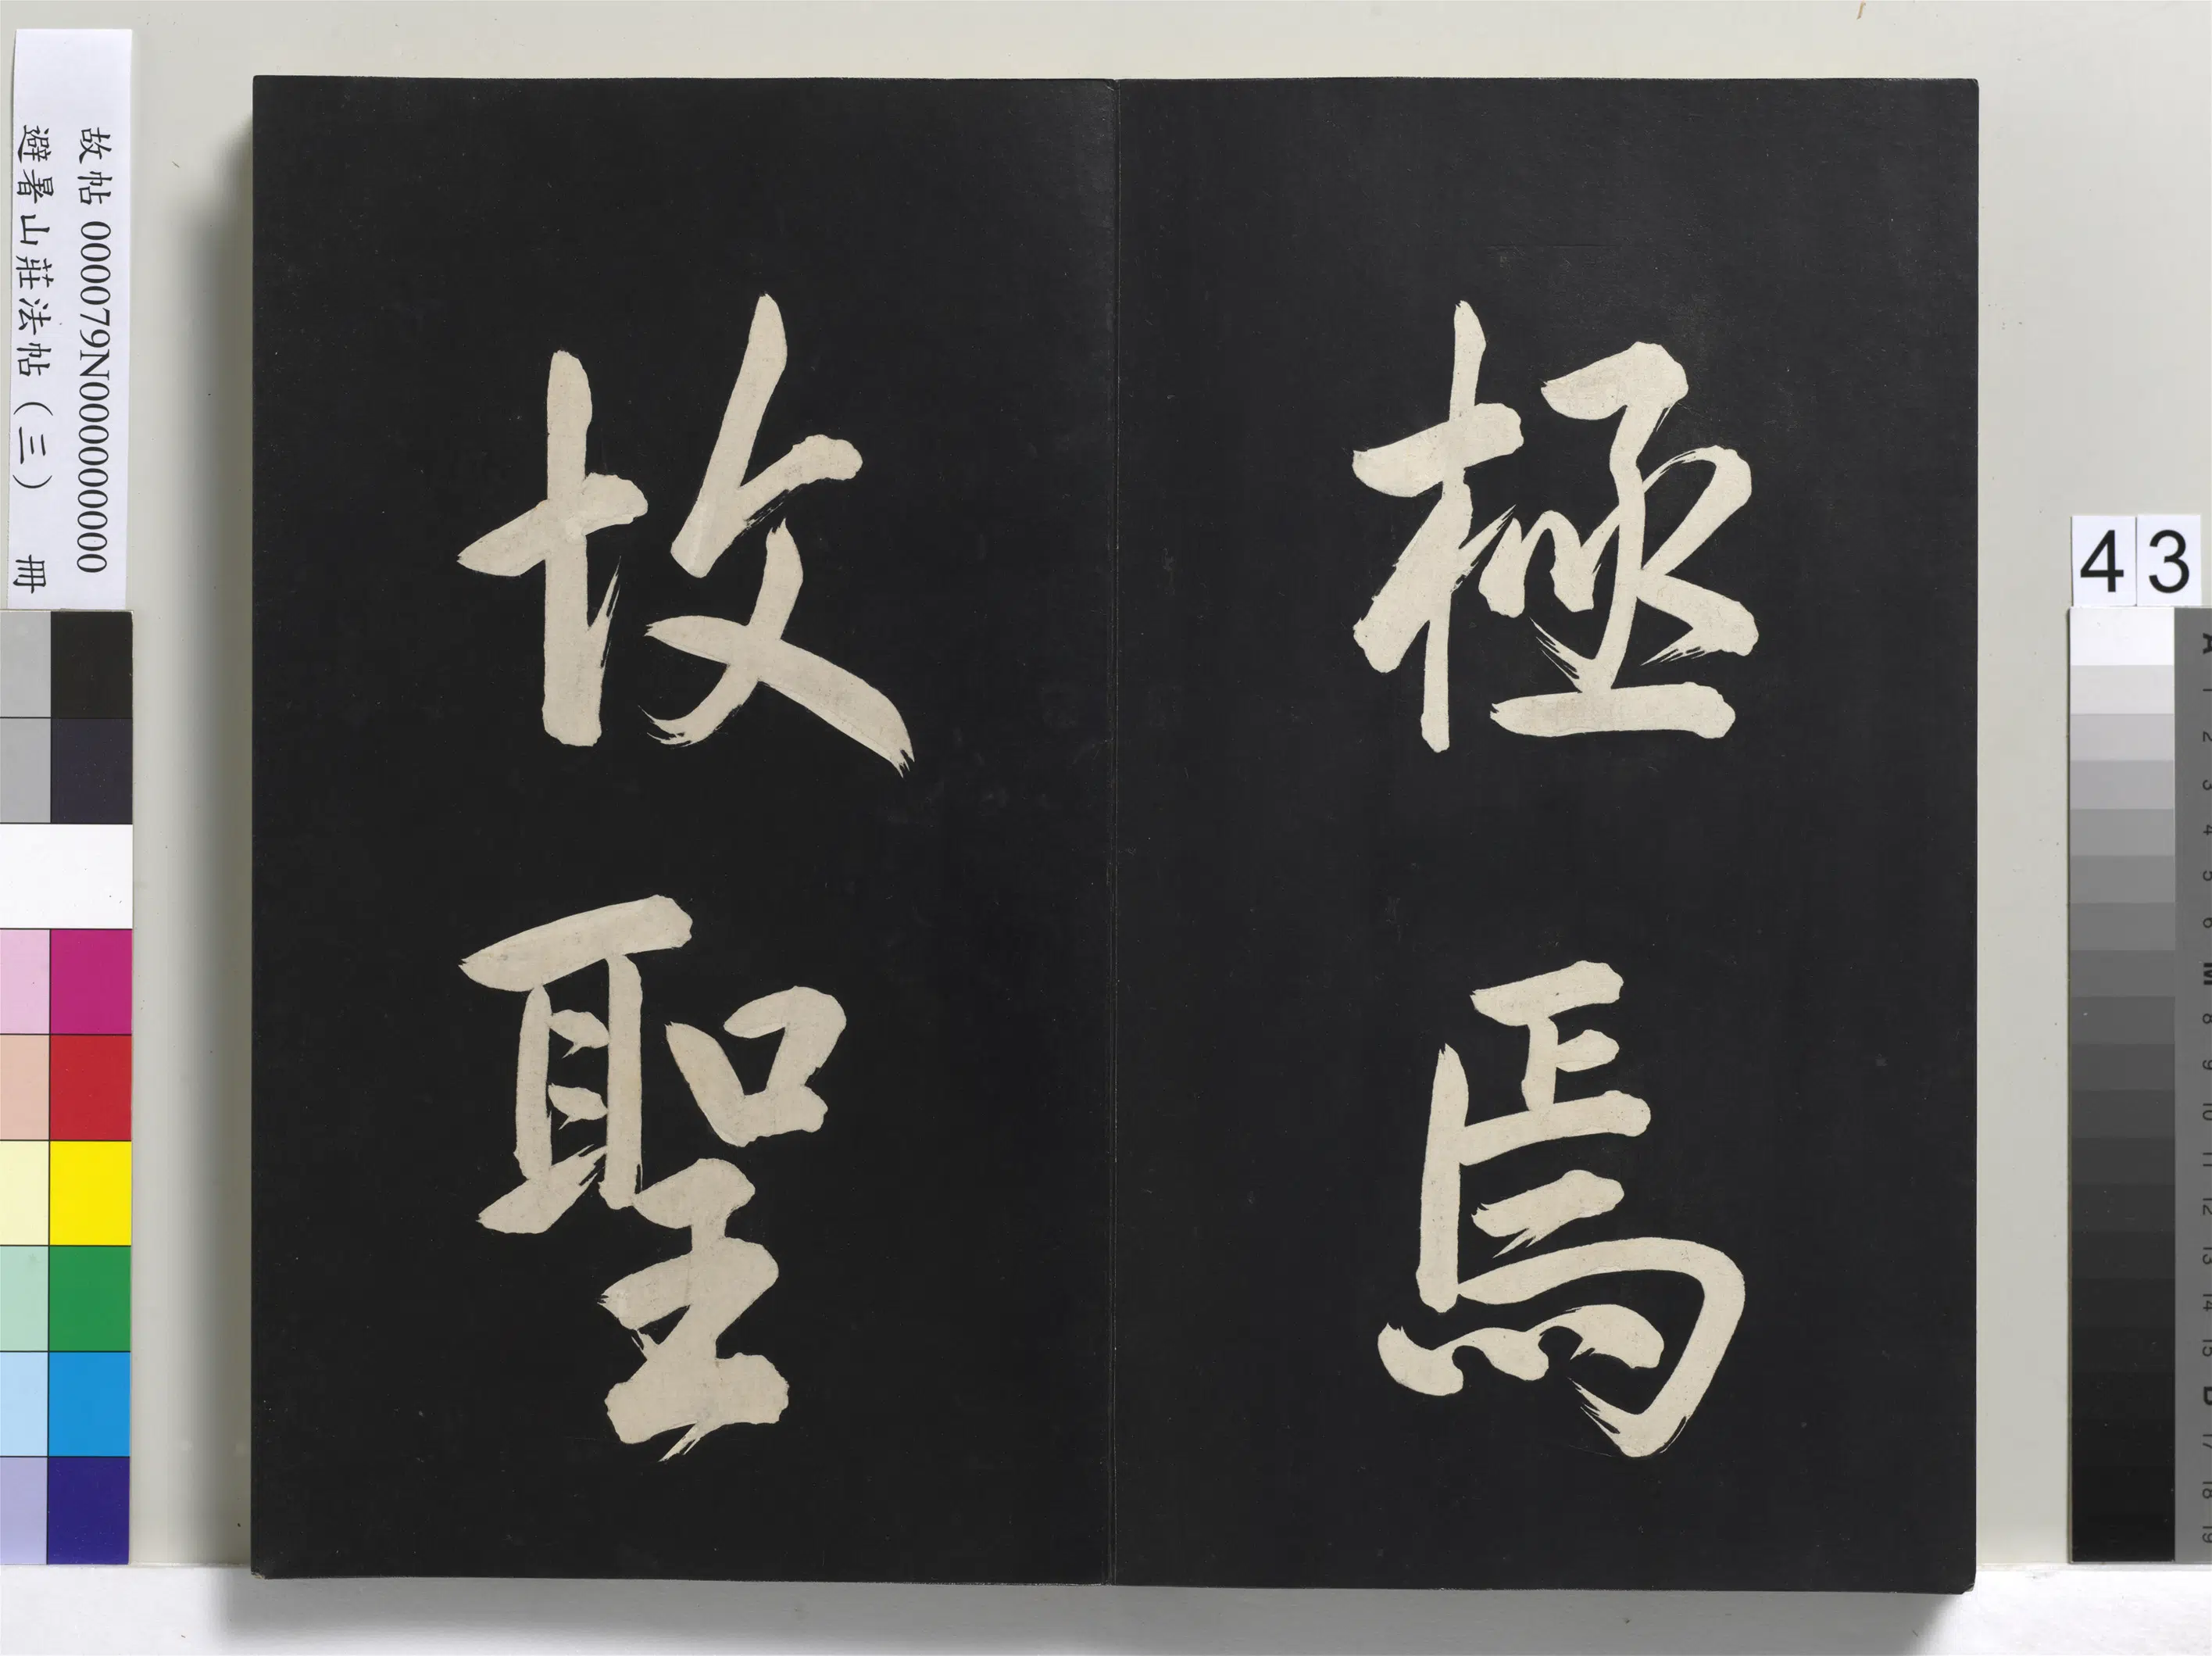 極焉
故聖
故帖 000079N000000000
避暑山莊法帖（三） 冊
43
A 1 2 3 4 5 6 M 8 9 10 11 12 13 14 15 B 17 18 19